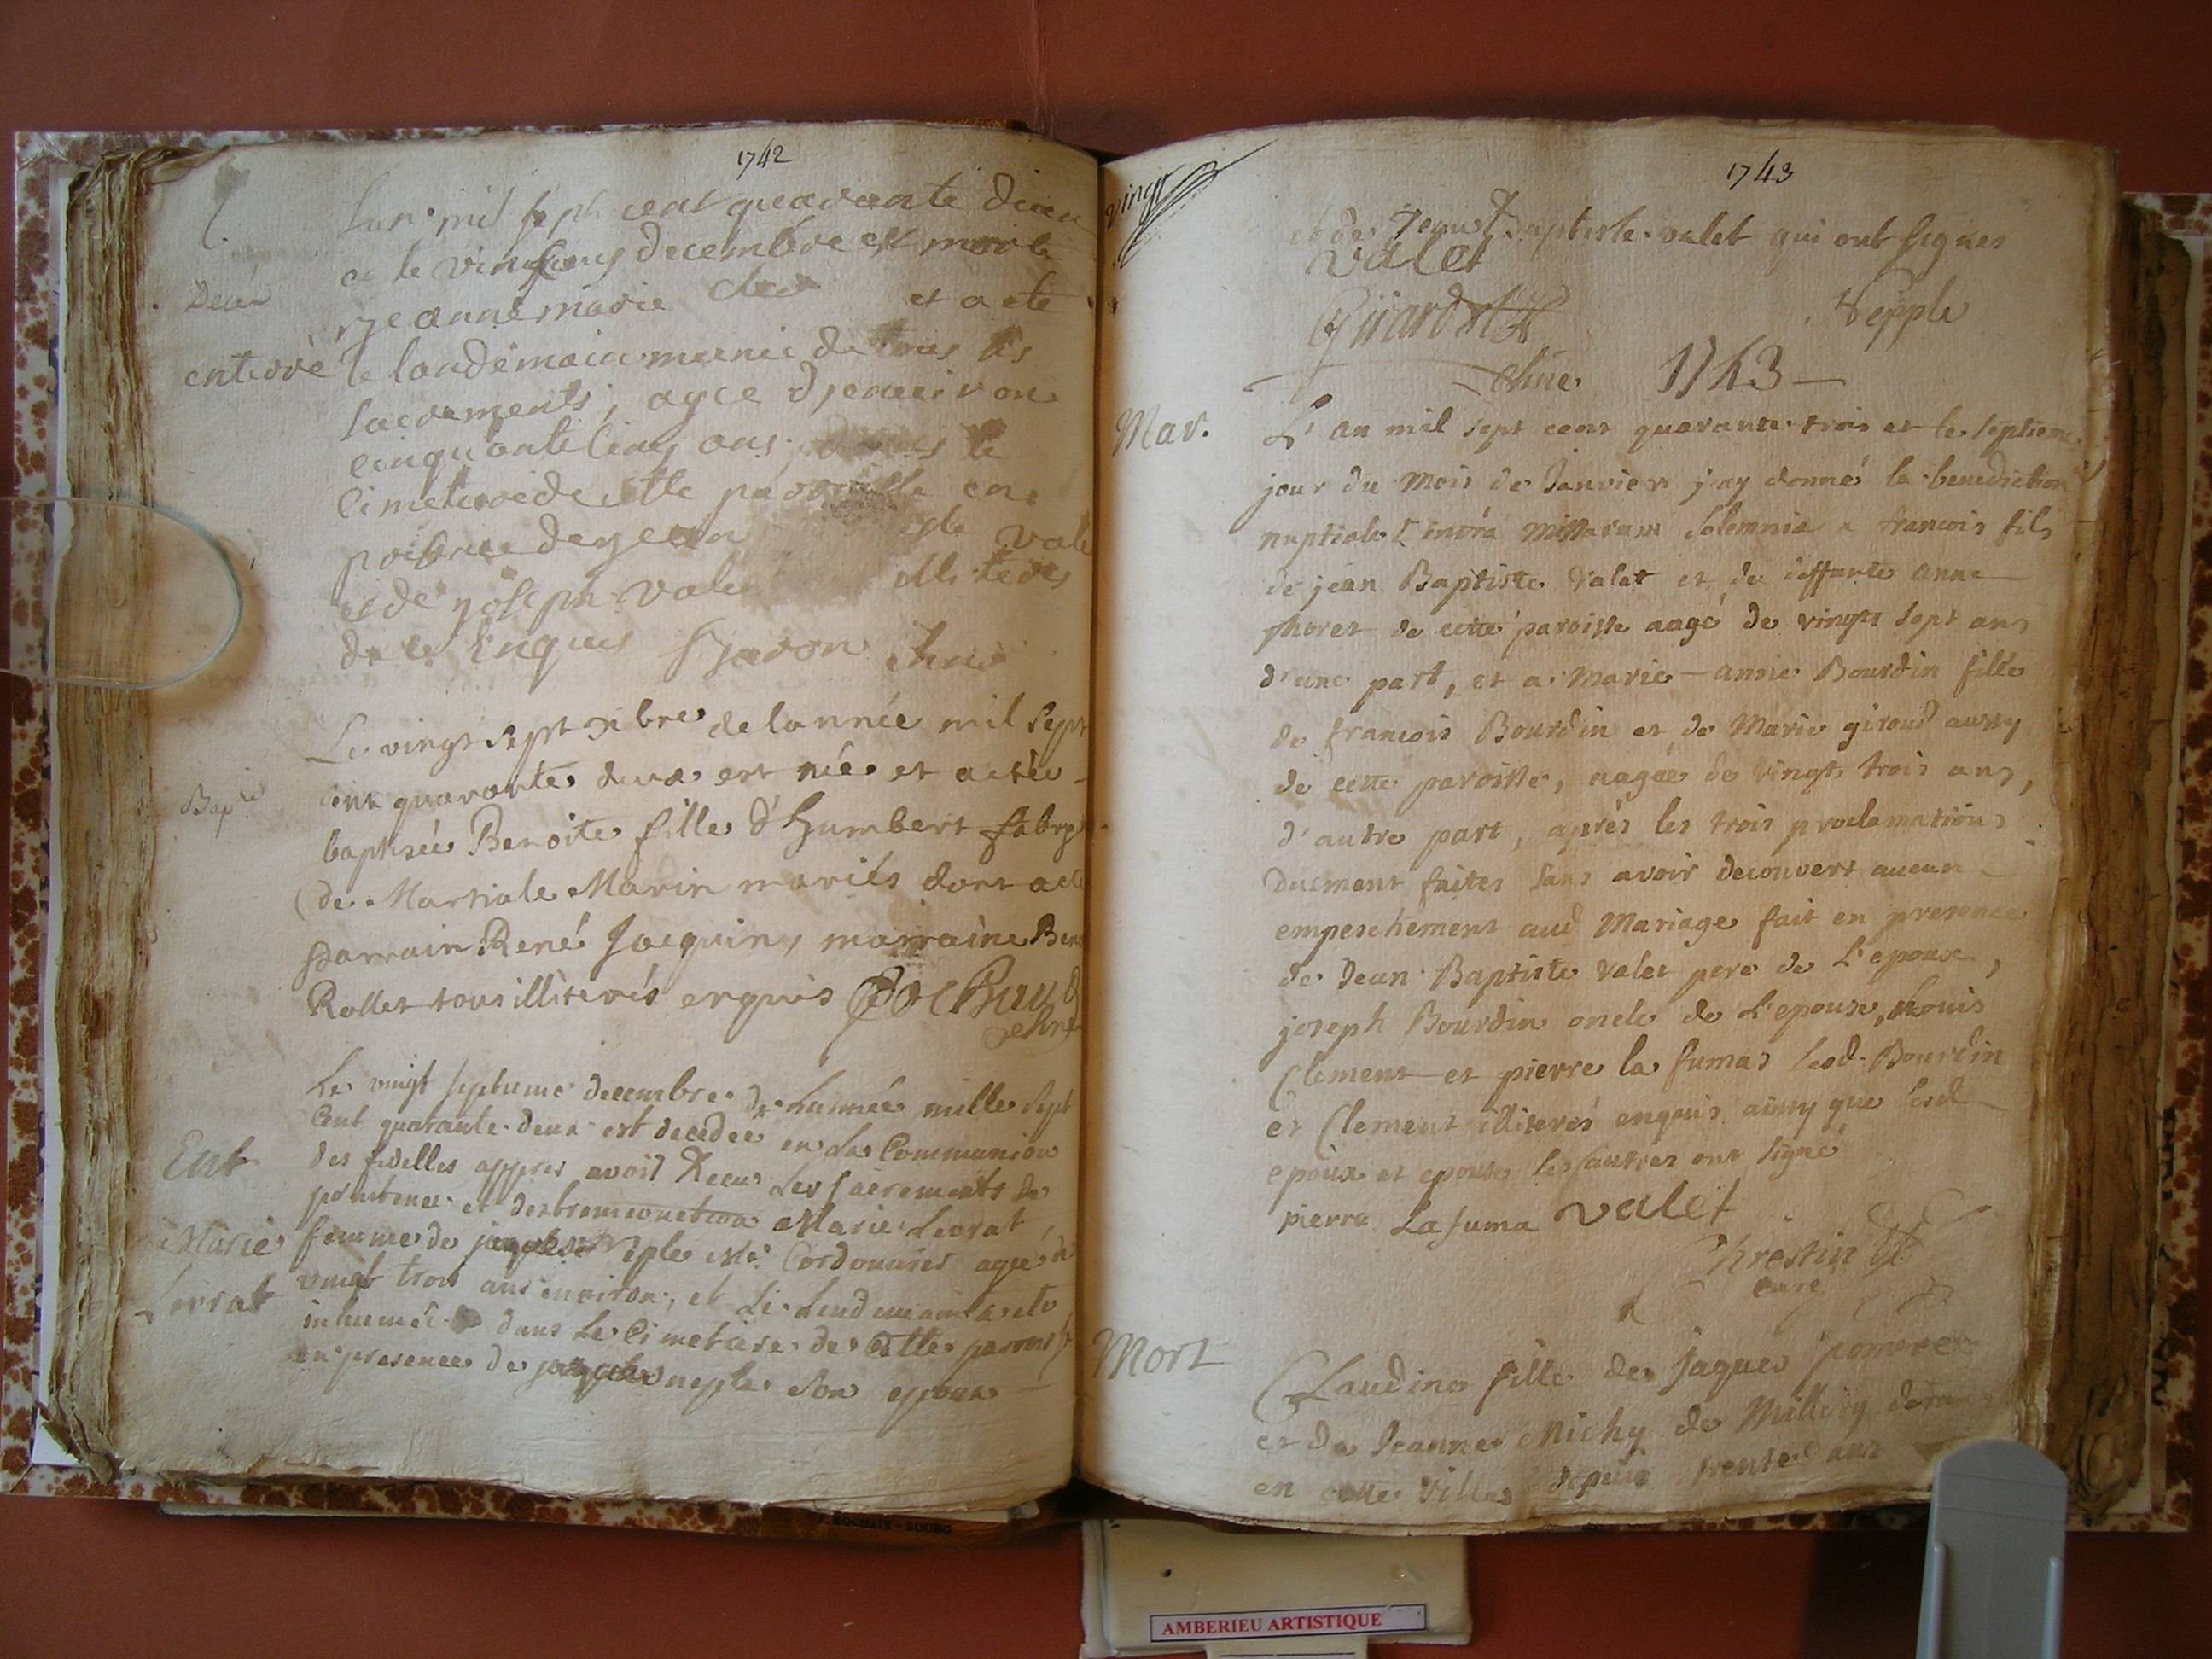 1742
Lan mil sept cent quarante deux
ce le vint cinq decembre est morte
Decés
jeanne marie et a ete
enterré le landemain munie de tous les
sacrements, agee d'enuiron
cinquante cinq ans, dans le
cimetiere de cette parroisse en
presence de jean vale
et de joseph valet illiteres
de ce enquis
Le vingt sept xbre de lannée mil sept
Bap.
cent quarante deux est née et a etée
baptisée Benoite fille d'Humbert
de Martiale Marin mariés dont acte
Parrain René Jacquin, marraine Ben
Rollet tous illiterés enquis
Le vingt septieme decembre de Lannée mille sept
Cent quarante deux est decedée en La Communion
Ent
des fidelles appres avoir Receu Les sacrements de
penitence et dextremeonction Marie Leorat
Marie femme de neple Me Cordonnier agée de
Lorrat vingt trois ans environ, et Le Lendemain a ete
inhumée dans Le Cimetiere de Cette parroisse
en presence de neple Son epoux
vingt
1743
et de Jean Baptiste valet qui ont signes
valet
Girard
Nepple
1743
Mar. L'an mil sept cent quarante trois et le septieme
jour du mois de Janvier j'ay donné la benediction
nuptiale intra missarum solemnia a francois fils
de jean Baptiste Valet et de deffunte anne
de cette paroisse aagé de vingt sept ans
d'une part, et a Marie-anne Bourdin fille
de francois Bourdin et de Marie giroud aussy
de cette paroisse, aagée de vingt trois ans,
d'autre part, aprés les trois proclamations
duement faites sans avoir decouvert aucun
empeschement aud Mariage fait en presence
de Jean Baptiste Valet pere de L'epoux,
joseph Bourdin oncle de L'epouse, Louis
Clement et pierre la fumas lesd. Bourdin
et Clement illiterés enquis aussy que lesd
epoux et epouse les autres ont signé
pierre Lafuma valet
Chrestin
curé
Mort
Claudine fille de jaques
et de Jeanne Michy de
en cette ville depuis trente ans
J. ROCHAIX - BOURG
AMBERIEU ARTISTIQUE